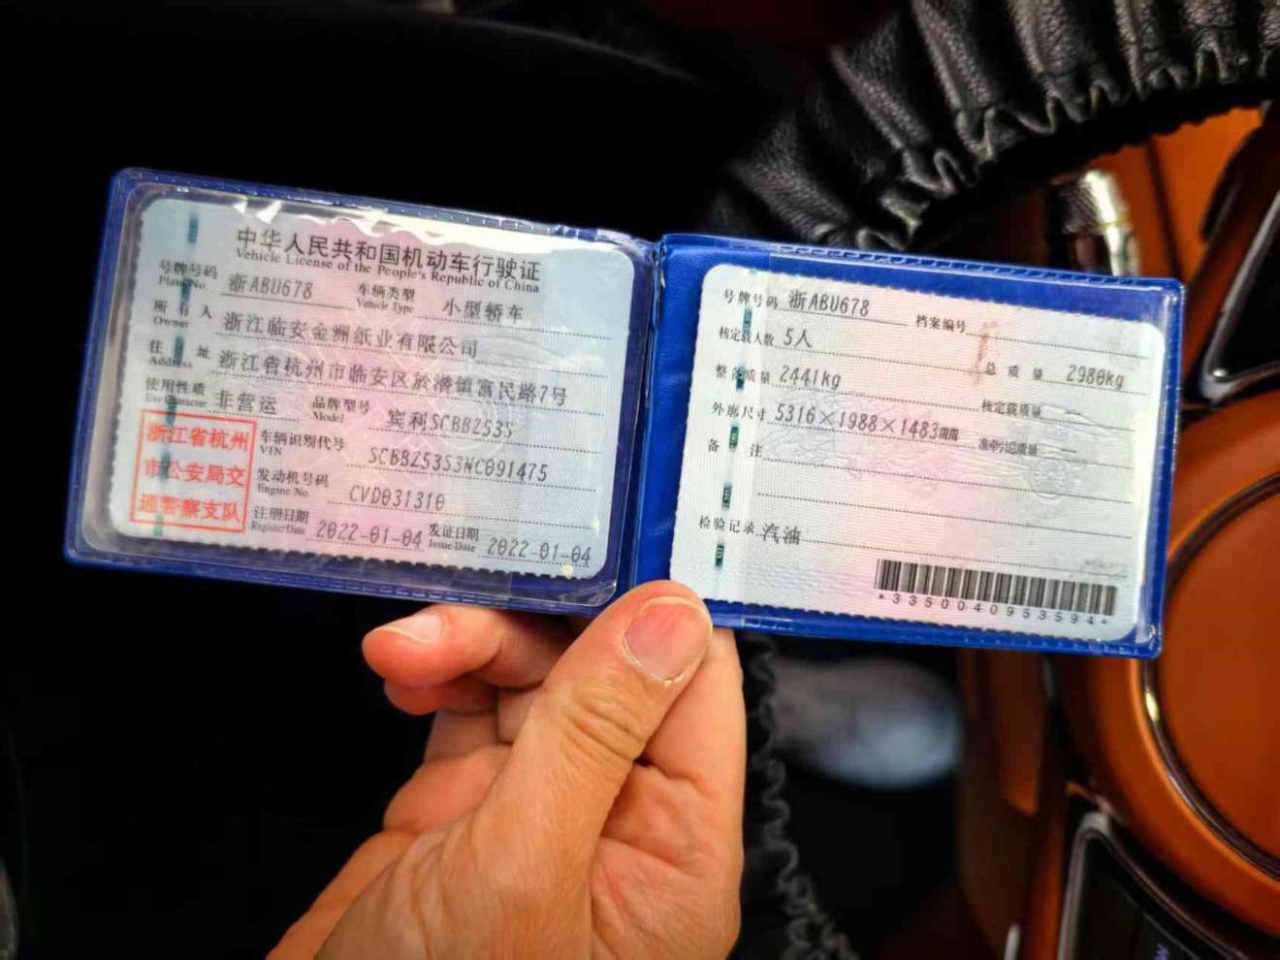 中华人民共和国机动车行驶证
Vehicle License of the People's Republic of China
号牌号码 浙ABU678 车辆类型 小型轿车
Plate No. Vehicle Type
所有人 浙江临安金洲纸业有限公司
Owner
住址 浙江省杭州市临安区於潜镇富民路7号
Address
使用性质 非营运 品牌型号 宾利SCBB2535
Use Character Model
浙江省杭州
市公安局交
通警察支队
车辆识别代号 SCBB253S3NC091475
VIN
发动机号码 CVD031310
Engine No.
注册日期 2022-01-04 发证日期 2022-01-04
Register Date Issue Date
号牌号码 浙ABU678 档案编号
核定载人数 5人 总质量 2980kg
整备质量 2441kg 核定载质量 —
外廓尺寸 5316×1988×1483mm 准牵引总质量 —
备注
检验记录 汽油
*3350040953594*